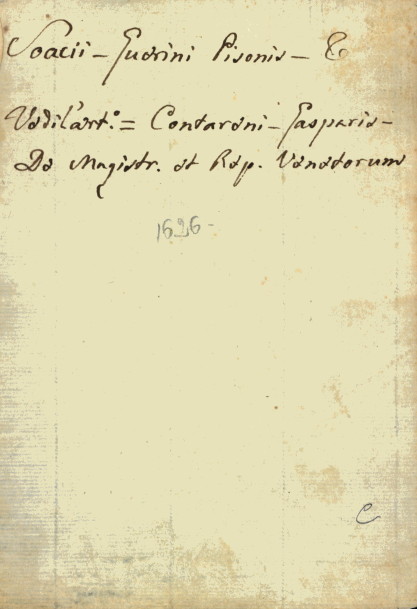 Soacii - Guerini Pisonis - &
Vedil'art.º = Contareni - Gasparis -
De Magistr. et Rep. Venetorum
1626 -
C